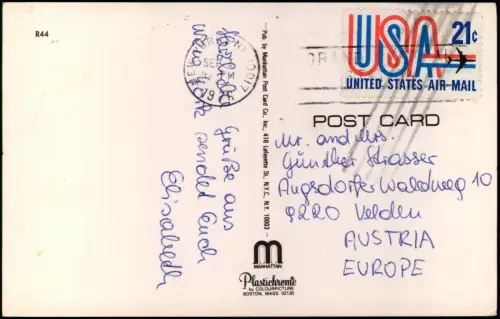 R44
Herzliche Grüße aus
New York sendet Euch
Elisabeth
Pub. by Manhattan Post Card Co., Inc., 418 Lafayette St., N.Y.C. N.Y. 10003
USA 21c
UNITED STATES AIR MAIL
POST CARD
Mr. and Mrs.
Günther Strasser
Augsdorfer Waldweg 10
9220 Velden
AUSTRIA
EUROPE
MANHATTAN
Plastichrome
by COLOURPICTURE
BOSTON, MASS. 02130